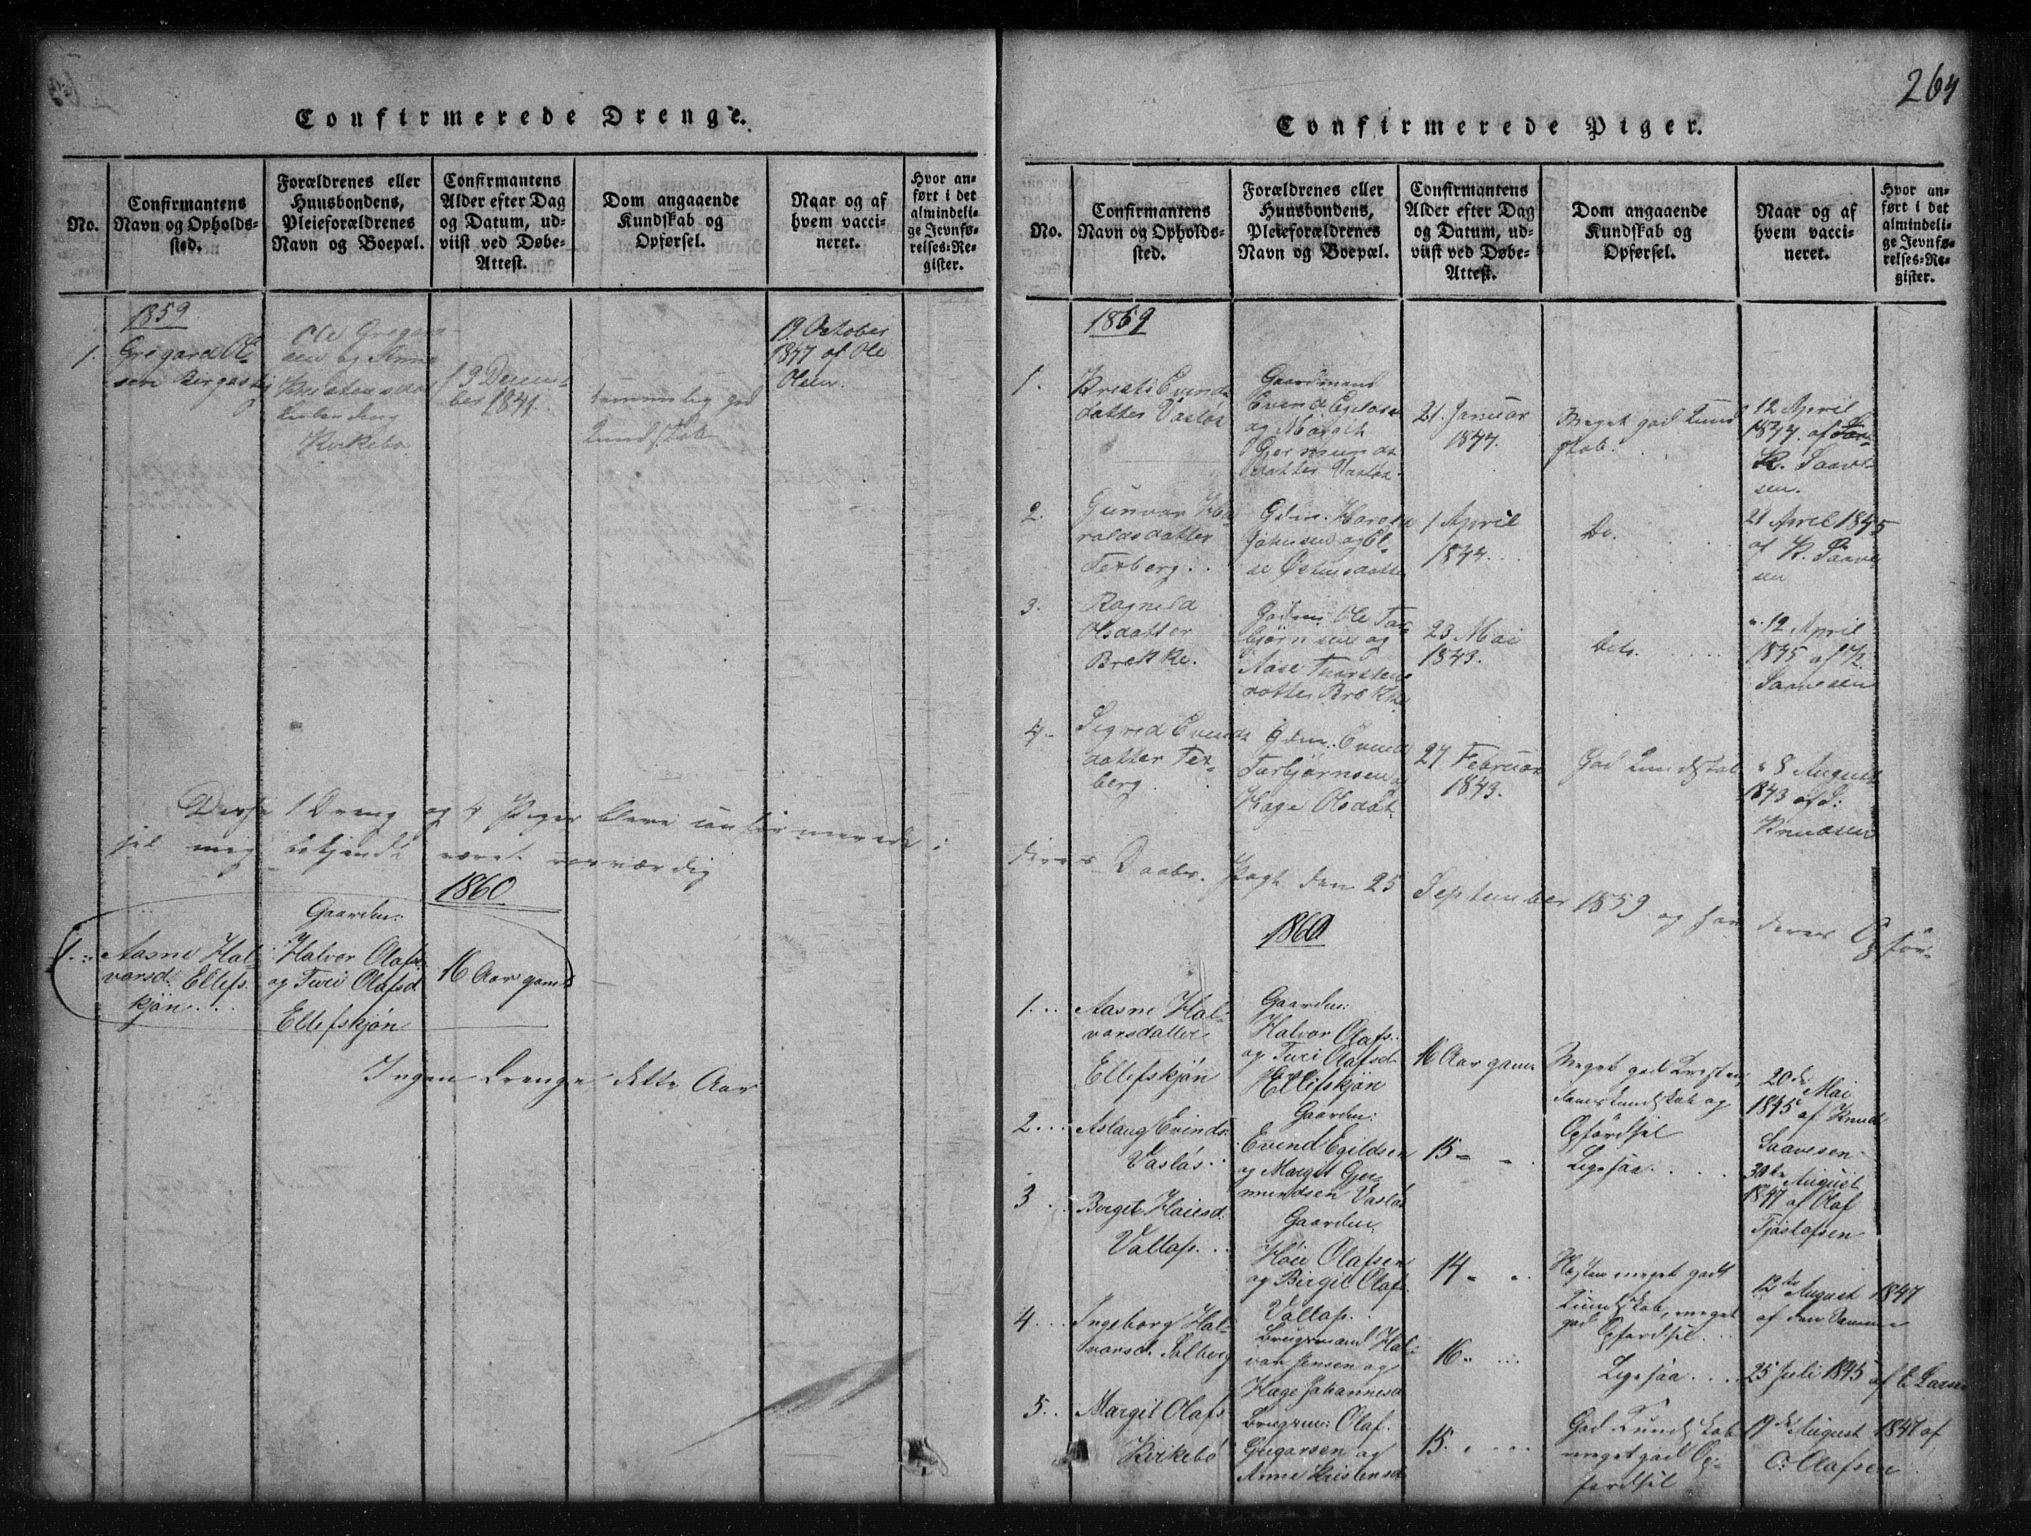 264
Confirmerede Drenge.
No.
Confirmantens
Navn og Opholds-
sted.
Forældrenes eller
Huusbondens,
Pleieforældrenes
Navn og Boepæl.
Confirmantens
Alder efter Dag
og Datum, ud-
viist ved Døbe-
Attest.
Dom angaaende
Kundskab og
Opførsel.
Naar og af
hvem vacci-
neret.
Hvor an-
ført i det
almindeli-
ge Jevnfø-
relses-Re-
gister.
1859
1.
Gregard Ol-
sen
Ole Gregar-
sen og Anne
Kirkebø
9 Decem-
ber 1841.
temmelig god
Kundskab
19 October
1847 af Ole
Olsen.
Disse 1 Dreng og 4 Piger bleve confirmerede i
sel mig bekjendt været roesværdig
1860
1. Aasne Hal-
varsd. Ellefs-
kjøn
Gaardm:
Halvor Olafs.
og Turi Olafsd
Ellefskjøn
16 Aar gaml
Ingen Drenge dette Aar
Confirmerede Piger.
No.
Confirmantens
Navn og Opholds-
sted.
Forældrenes eller
Huusbondens,
Pleieforældrenes
Navn og Boepæl.
Confirmantens
Alder efter Dag
og Datum, ud-
viist ved Døbe-
Attest.
Dom angaaende
Kundskab og
Opførsel.
Naar og af
hvem vacci-
neret.
Hvor an-
ført i det
almindeli-
ge Jevnfø-
relses-Re-
gister.
1859
1.
Kristi Evinds
datter Vasløs
Gaardmand
Evend
og Margit
Germunds
datter Vasløs.
21 Januar
1844.
Meget god Kund
skab.
12 April
1847. af
K. Saave-
sen.
2.
Gunvor Ha-
raldsdatter
Texberg.
Gdm. Harald
Johnsen og El-
se Østensdatter
1 April
1844.
Do.
21 April 1845
af K. Saave
sen
3.
Ragnild
Olsdatter
Brekke.
Gadm. Ole Tar-
bjørnsen og
Aase Thorstens
datter Brekke
23 Mai
1843.
Dito.
12 April
1845 af K
Saavesen
4.
Sigrid Evinds
datter Tex-
berg.
Gdm. Evind
Tarbjørnsen
Hæge Olsdat
27 Februar
1843.
God Kundskab
8 August
1843 af
Knudsen
deres Daabs Pagt den 25 September 1859 og har deres Opfør-
1860
1. Aasne Hal-
vorsdatter
Ellefskjøn
Gaardm:
Halvor Olafs.
og Turi Olafsd.
Ellefskjøn
16 Aar gaml
Meget god Kristen-
domskundskab og
Opførdsel
20de Mai
1845 af Knud
Saavesen
2. Aslaug Evinds.
Vasløs.
Gaardm:
Evend Egildsen
og Margit Ger-
mundsen Vasløs
15
Ligesaa.
30te August
1847 af Olaf
Tjøstolfsen
3. Birgit Høiesd.
Vallaps.
Gaardm.
Høie Olafsen
og Birgit Olafs.
Vallaps.
14
Næsten meget godt
Kundskab, meget
god Opførdsel.
12te August 1847
af den Samme
4. Ingeborg Hal-
varsd. Solberg
Brugsmand Hal-
var Jensen og
Hæge Johannesd
16
Ligesaa.
25 Juli 1845 af E Larsen
5. Margit Olafs
Kirkebø
Brugsm: Olaf
Gregarsen og
Anne Kristensd
15.
God Kundskab
meget god Op-
førdsel
19de August 1847 af
O: Olafsen